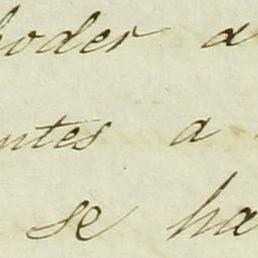 poder a
ntes a
se ha